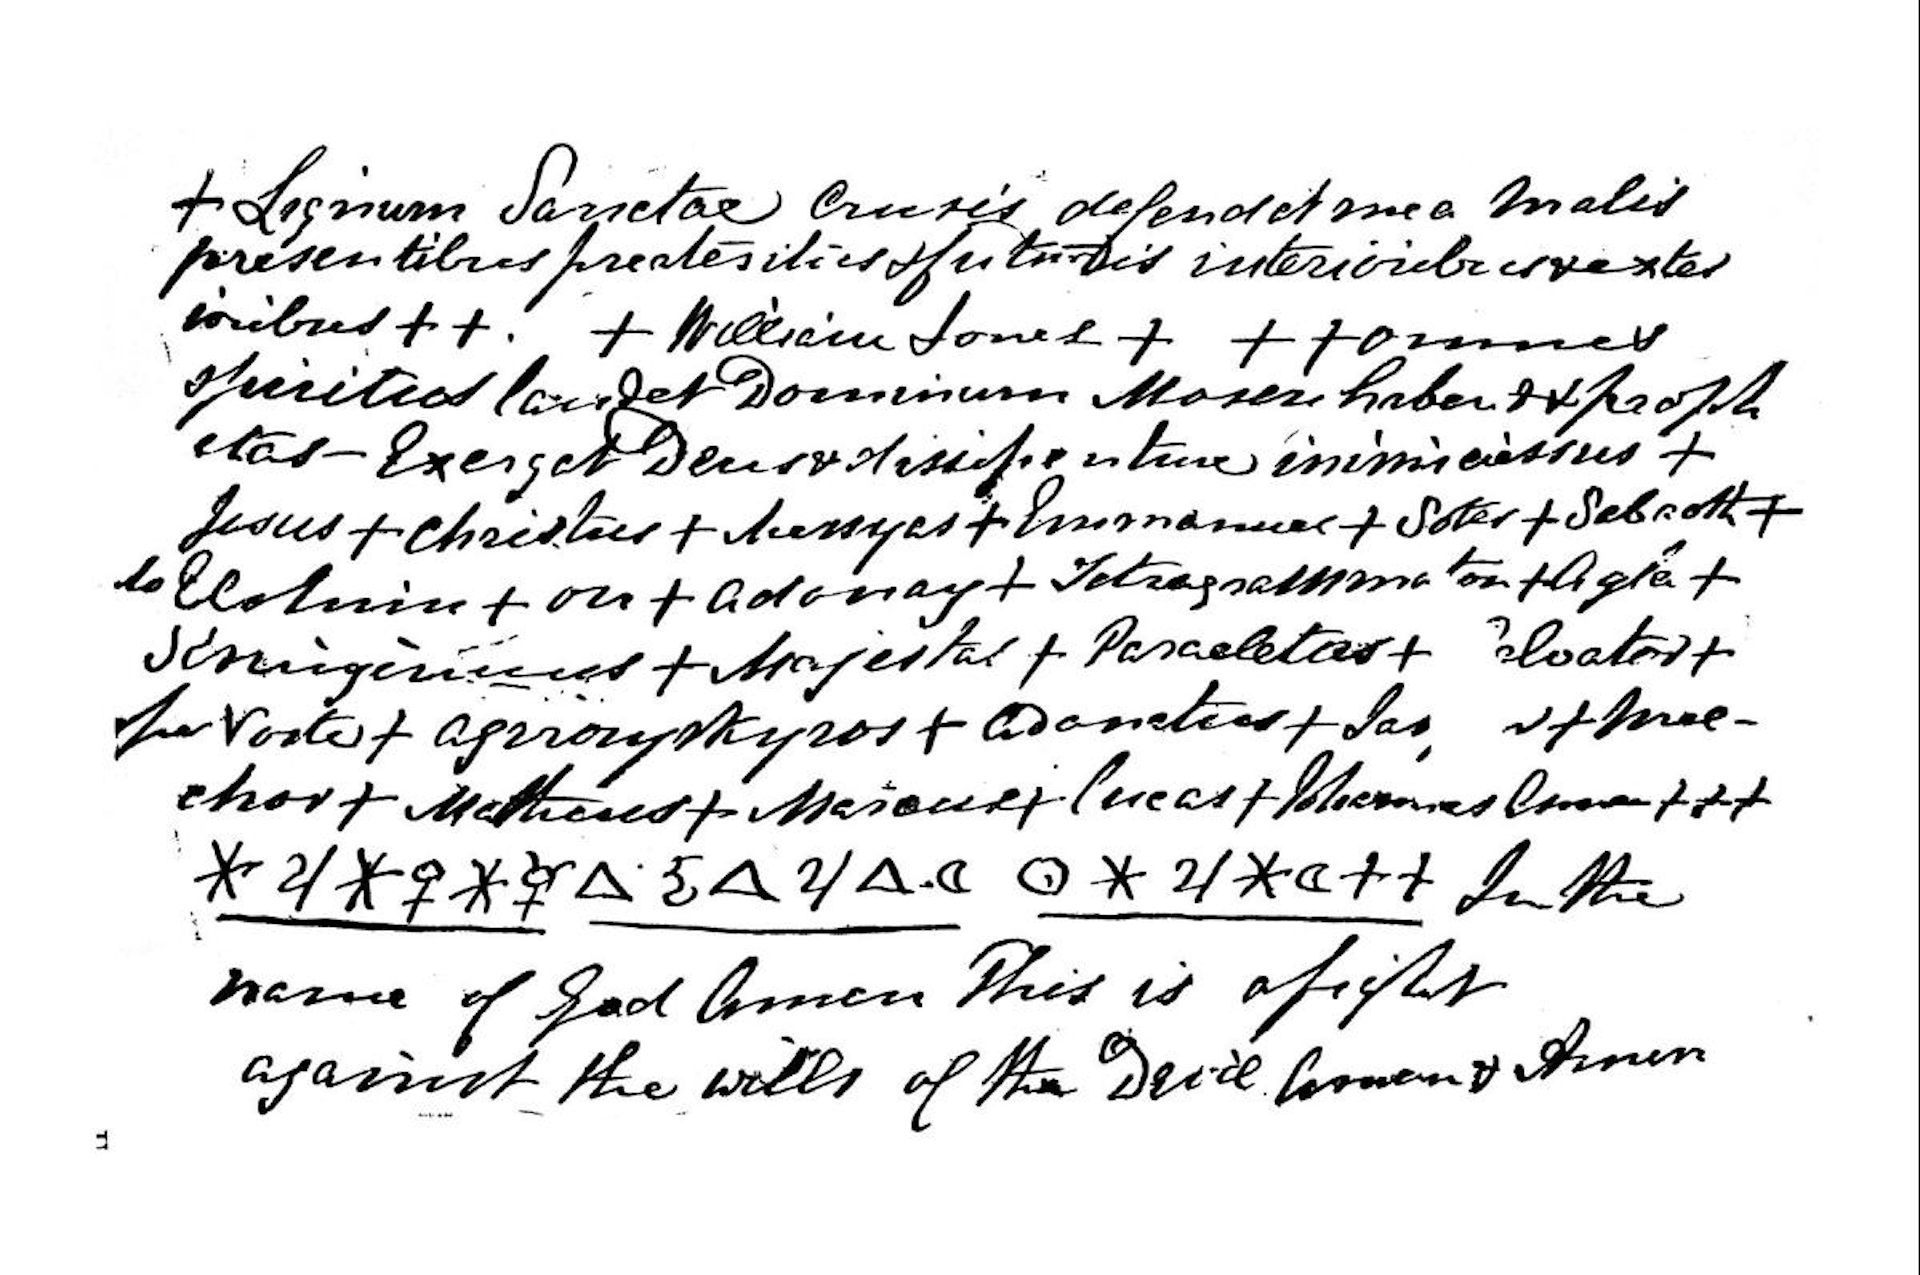 + Lignum Sanctae Crusis defendet me a malis
presentibus preateritus & futuris interioribus & exter
ioribus + + . + William Jones + + + omnes
spiritus laudet Dominum Mosen habent & proph
etas – Exerget Deus & dissipenture inimiciessus +
Jesus + Christus + Messyas + Emmanuel + Soter + Sabaoth +
Elohim + on + Adonay + Tetragrammaton + Agla +
+ Majestas + Paracletus + lvator +
+ agirouyskyros + Adonatus + Jas + Mel-
chor + Matheus + Marcus + Lucas + Johannes Amen + + +
* ♃ * ♀ * ☿ △ △ ♃ △ . ☾ ☉ * ♃ * ☾ + + In the
name of God Amen This is a fight
against the wills of the Devil Amen & Amen